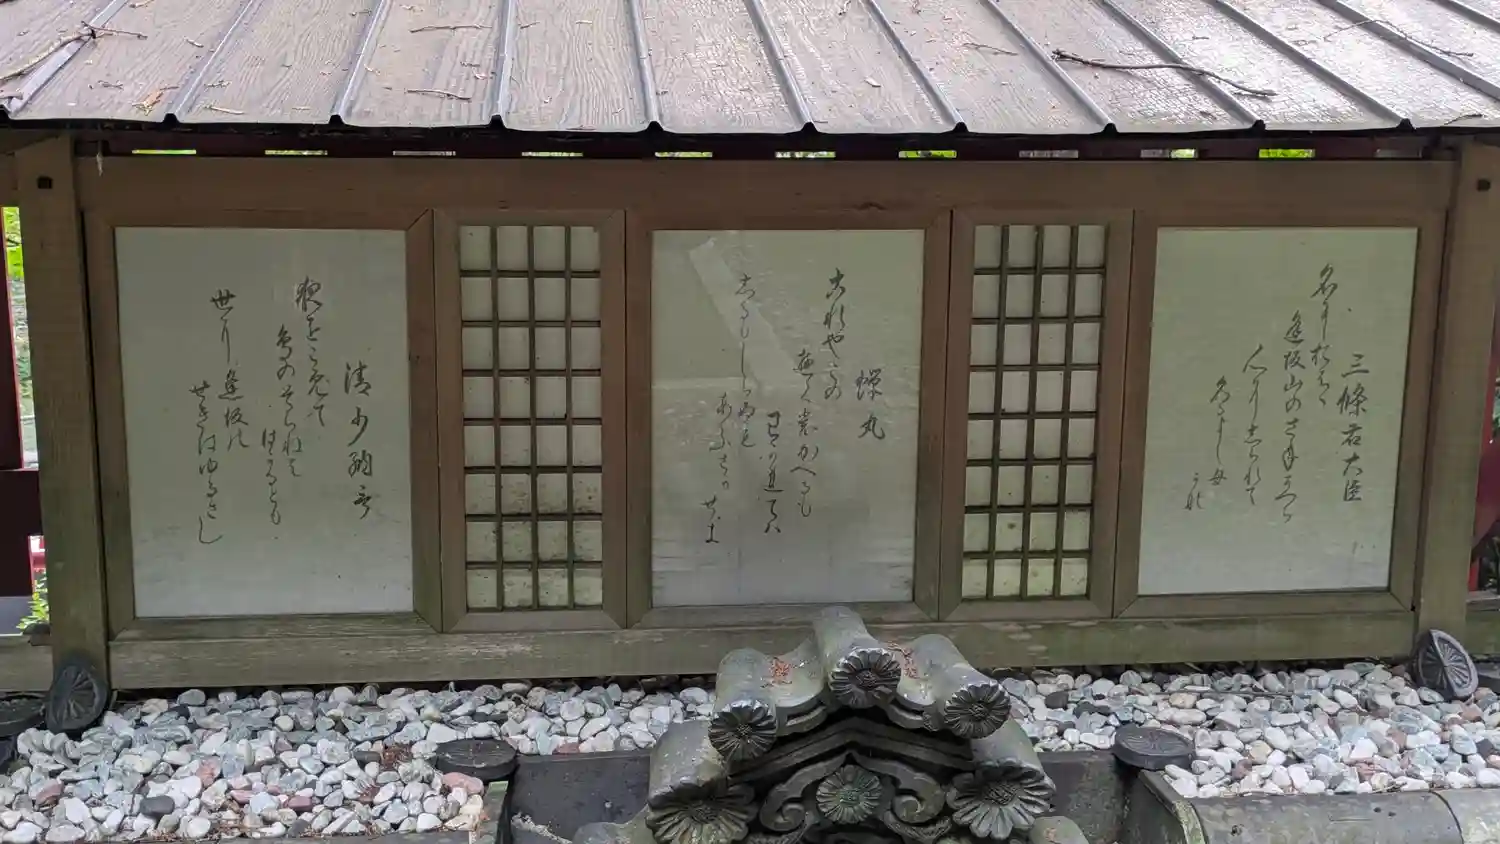 三條右大臣
名にしおはゝ
逢坂山のさねかつら
人にしられて
くるよし毋
かな
蝉丸
古れやこの
遊く裳かへるも
王可連ては
志るもしらぬも
あふさかのせき
清少納言
夜をこめて
鳥のそらねは
はかるとも
世に逢坂の
せきはゆるさし